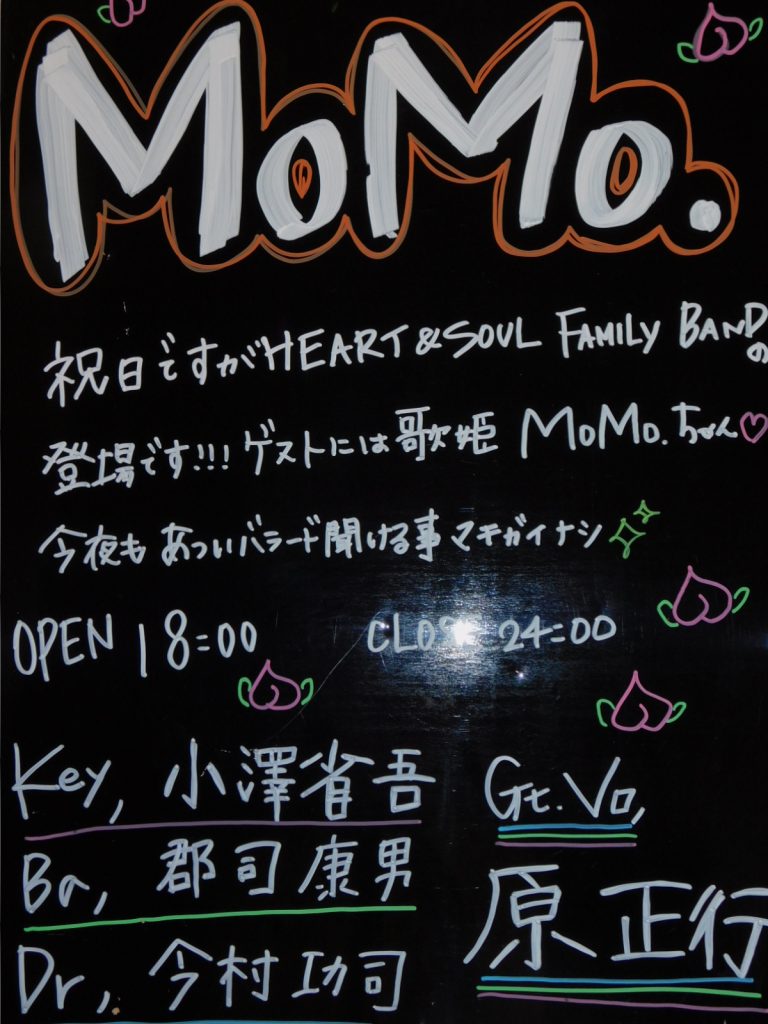 MoMo.
祝日ですがHEART&SOUL FAMILY BANDの
登場です!!! ゲストには歌姫 MoMo.ちゃん♡
今夜も あついバラード聞ける事マチガイナシ
OPEN 18=00 CLOSE 24=00
Key, 小澤省吾
Gt.Vo,
Ba, 郡司康男
原 正行
Dr, 今村功司